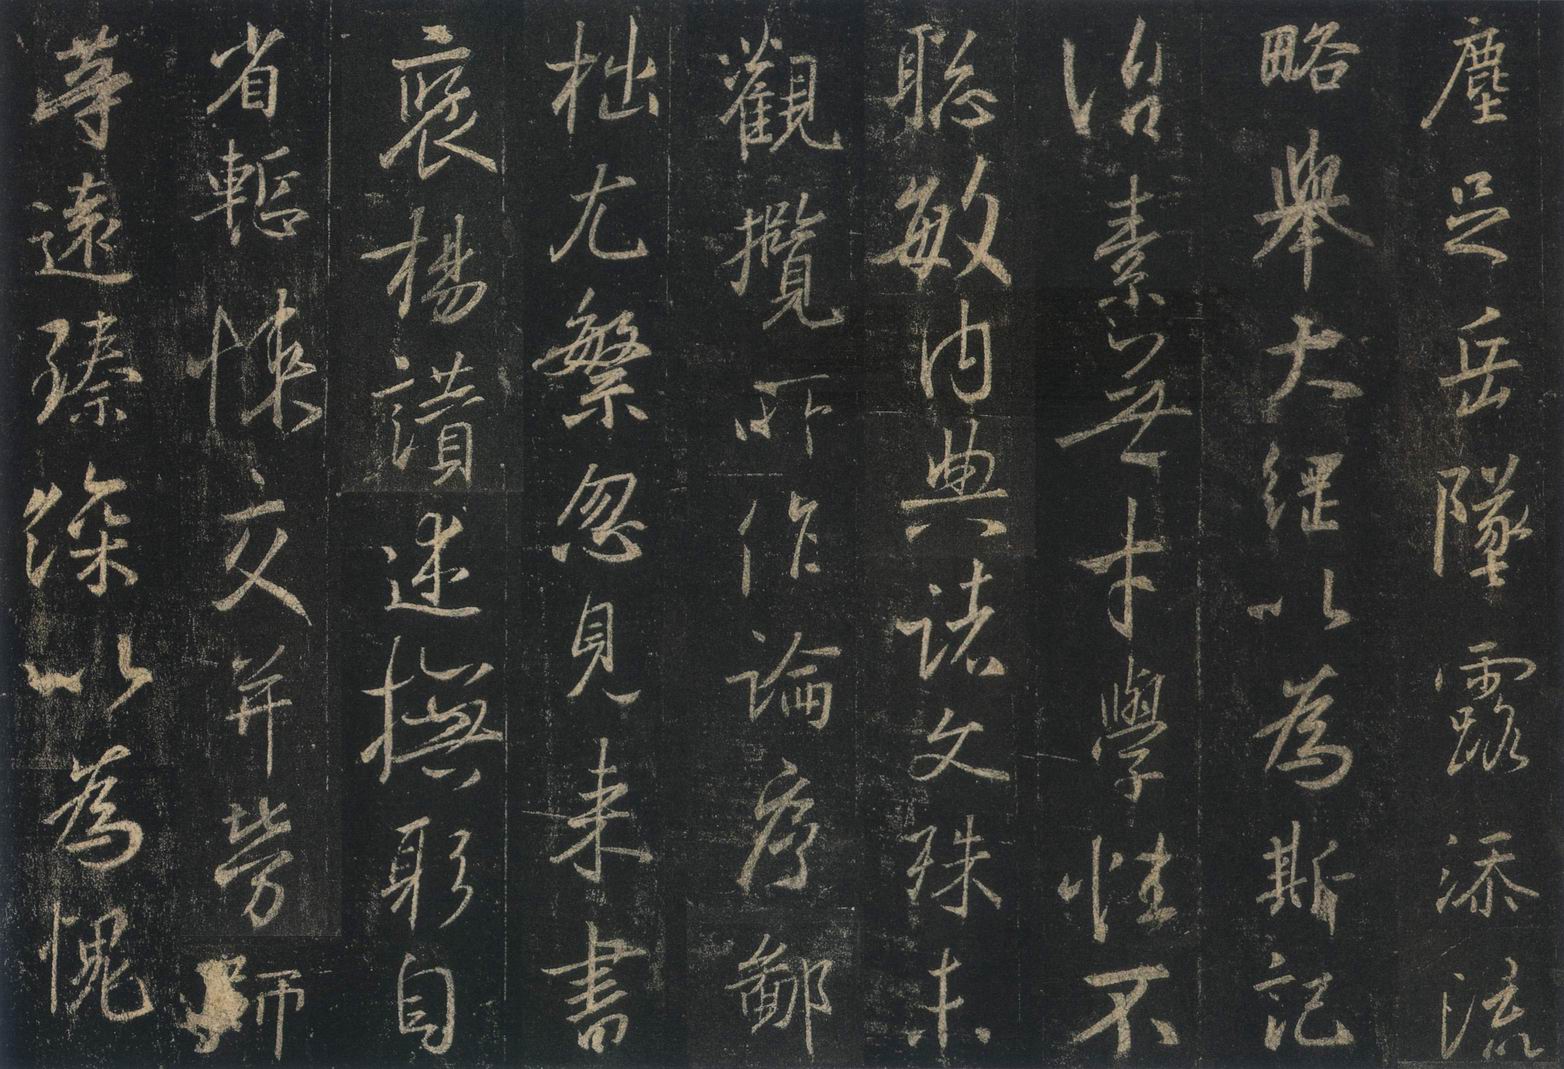 塵足岳墜露添流
略舉大綱以為斯記
治素無才學性不
聡敏內典諸文殊未
觀攬所作論序鄙
拙尤繁忽見来書
褒楊讚述撫躬自
省慙悚交并勞師
等遠臻深以為愧